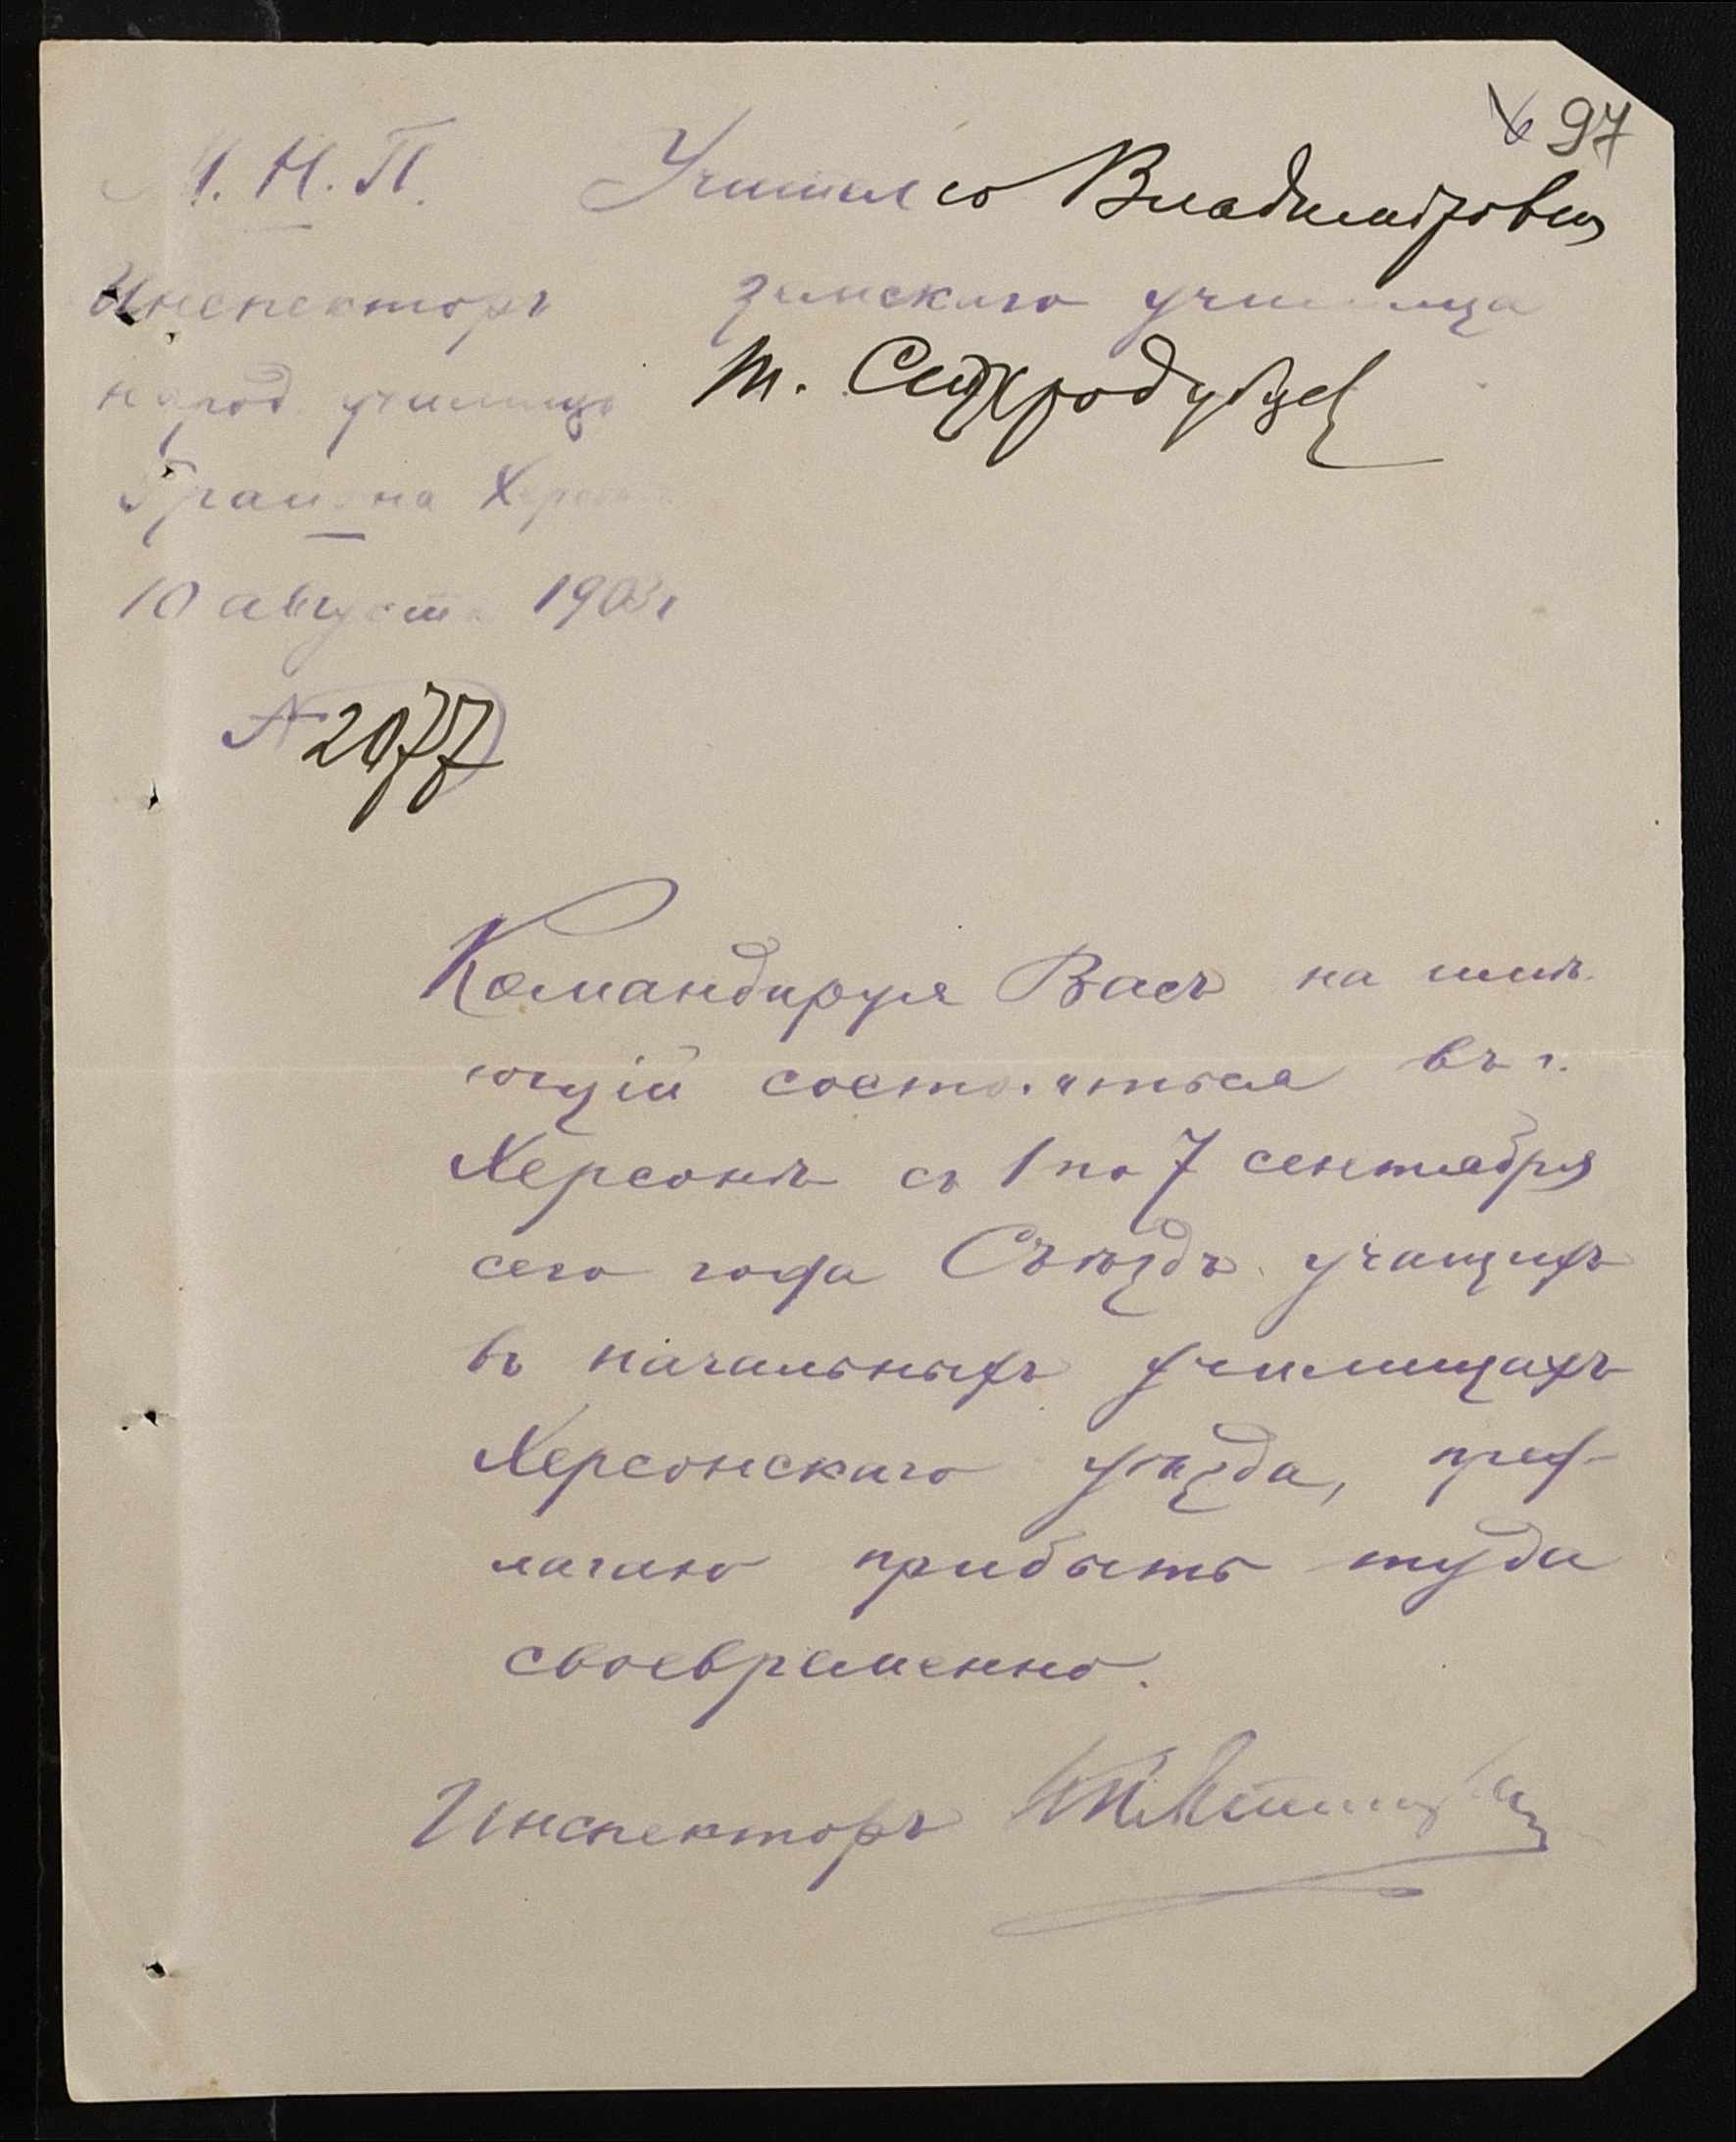 97
М. Н. П.
Инспекторъ
народ. училищъ
района Херсон
10 августа 1903 г.
№ 2077
Учителю Владимировск
земскаго училища
Командируя Васъ на имѣ-
ющій состояться въ г.
Херсонѣ съ 1 по 7 сентября
сего года Съѣздъ учащихъ
въ начальныхъ училищахъ
Херсонскаго уѣзда, пред-
лагаю прибыть туда
своевременно.
Инспекторъ